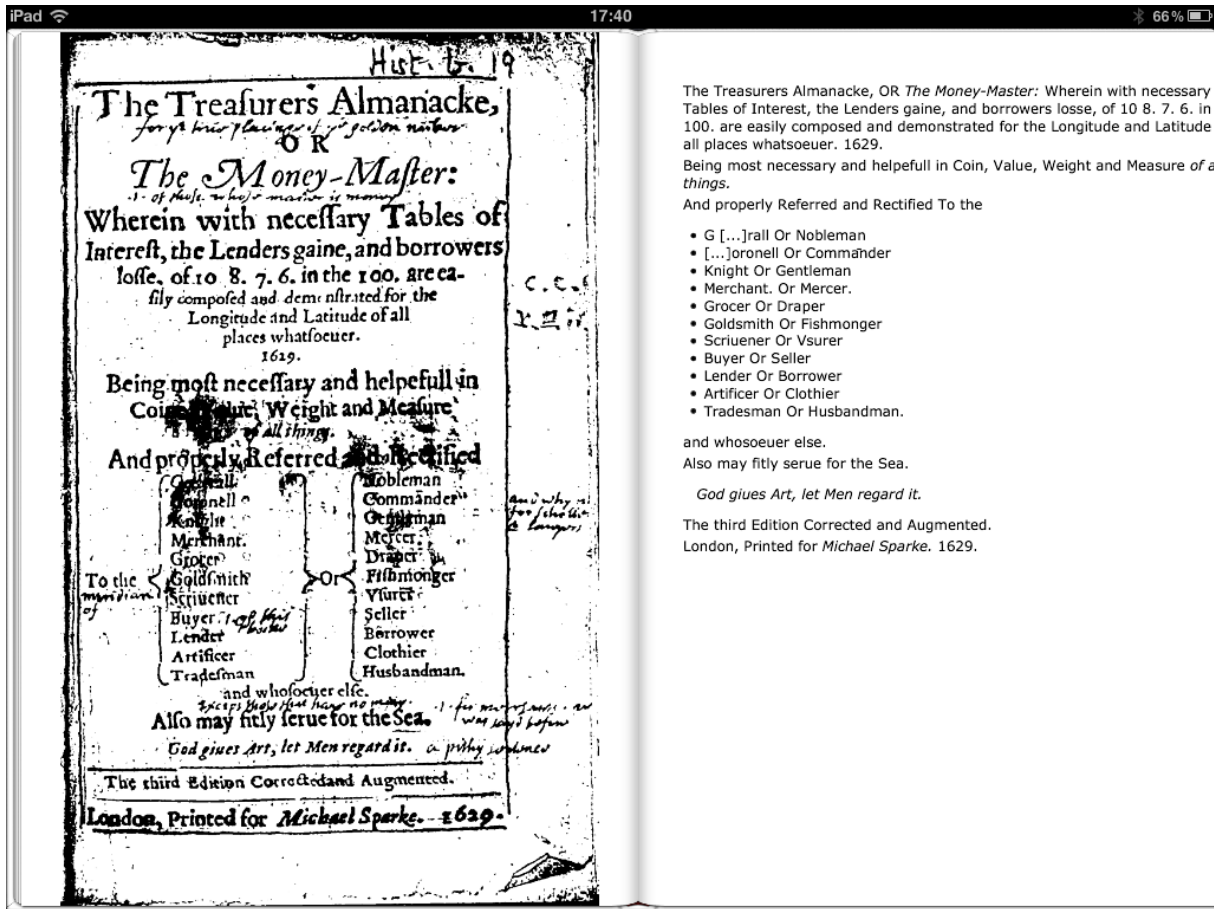 iPad
17:40
66%
Hist. G. 19
The Treaſurers Almanacke,
OR
The Money-Maſter:
of those whose master is money
Wherein with neceſſary Tables of
Intereſt, the Lenders gaine, and borrowers
loſſe, of 10 8. 7. 6. in the 100. are ea-
ſily compoſed and demonſtrated for the
Longitude and Latitude of all
places whatſoeuer.
1629.
Being moſt neceſſary and helpefull in
Coine, Value, Weight and Meaſure
of all things.
And properly Referred and Rectified
To the
meridian
of
Generall
Coronell
Knight
Merchant.
Grocer
Goldſmith
Scriuener
Buyer
Lender
Artificer
Tradeſman
Or
Nobleman
Commānder
Gentleman
Mercer.
Draper
Fiſhmonger
Vſurer
Seller
Borrower
Clothier
Husbandman.
and whoſoeuer elſe.
Except those that have no mony.
Alſo may fitly ſerue for the Sea.
God giues Art, let Men regard it. a pithy
The third Edition Corrected and Augmented.
London, Printed for Michael Sparke. 1629.
The Treasurers Almanacke, OR The Money-Master: Wherein with necessary
Tables of Interest, the Lenders gaine, and borrowers losse, of 10 8. 7. 6. in
100. are easily composed and demonstrated for the Longitude and Latitude
all places whatsoeuer. 1629.
Being most necessary and helpefull in Coin, Value, Weight and Measure of a
things.
And properly Referred and Rectified To the
• G [...]rall Or Nobleman
• [...]oronell Or Commānder
• Knight Or Gentleman
• Merchant. Or Mercer.
• Grocer Or Draper
• Goldsmith Or Fishmonger
• Scriuener Or Vsurer
• Buyer Or Seller
• Lender Or Borrower
• Artificer Or Clothier
• Tradesman Or Husbandman.
and whosoeuer else.
Also may fitly serue for the Sea.
God giues Art, let Men regard it.
The third Edition Corrected and Augmented.
London, Printed for Michael Sparke. 1629.